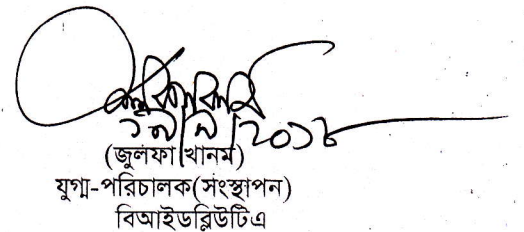 (জুলফা খানম)
যুগ্ম-পরিচালক(সংস্থাপন)
বিআইডব্লিউটিএ